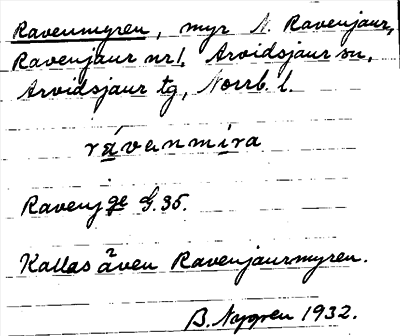 Ravenmyren, myr N. Ravenjaur,
Ravenjaur nr1, Arvidsjaur sn,
Arvidsjaur tg, Norrb. l.
rávenmíra
Ravenj ge G.35.
Kallas även Ravenjaurmyren.
B. Nygren 1932.